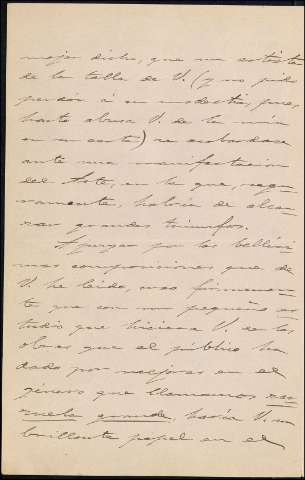 mejor dicho, que un artista
de la talla de V. (y no pido
perdón á su modestia, pues
harto abusa V. de la mía
en su carta) se acobardase
ante una manifestacion
del Arte, en la que, segu-
ramente, habría de alcan-
zar grandes triunfos.
A juzgar por las bellísi-
mas composiciones que de
V. he leido, creo firmemen-
te que con un pequeño es-
tudio que hiciera V. de las
obras que el público ha
dado por mejores en el
género que llamamos zar-
zuela grande, haría V. un
brillante papel en el